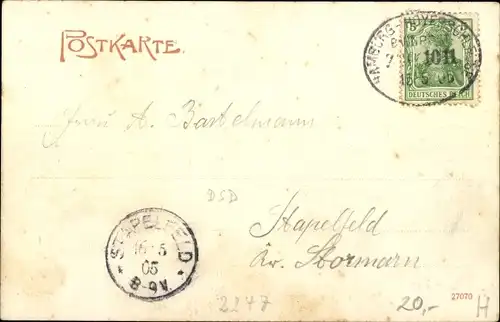 POSTKARTE.
HAMBURG-
BAHNPOST
1011
16 5 05
DEUTSCHES REICH
Herrn A. Bartelmann
DSD
Stapelfeld
Kr. Stormarn
STAPELFELD
16 5
05
8-9V.
2247
27070
20,-
H